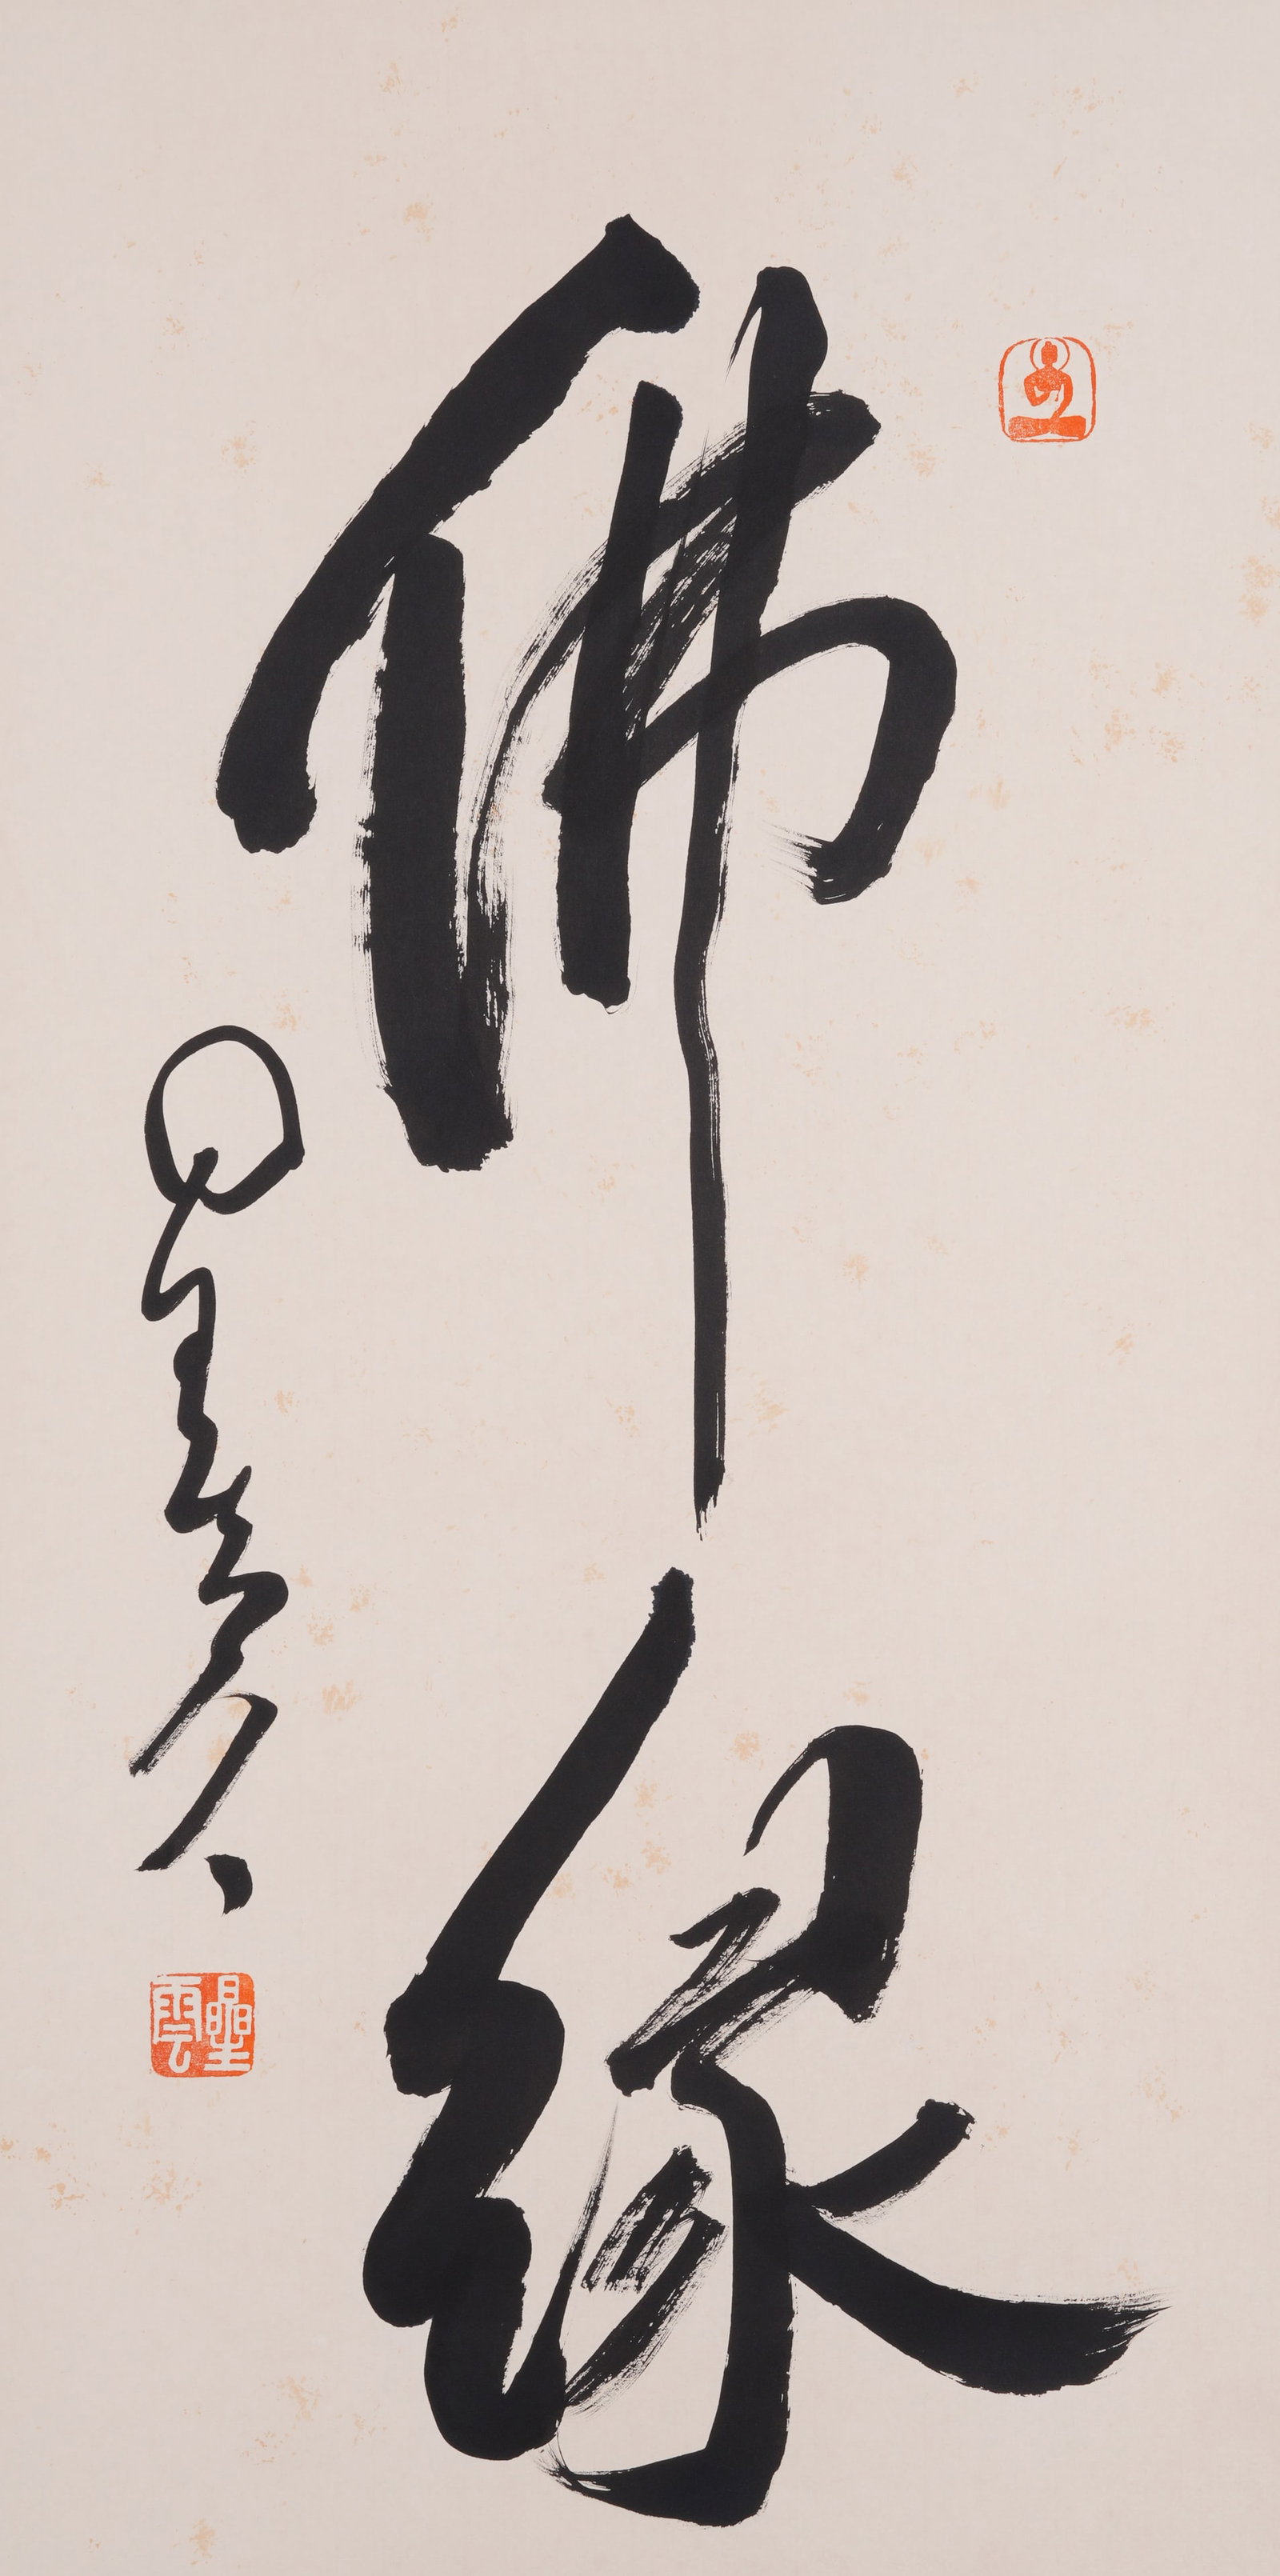 佛緣
星雲
星雲